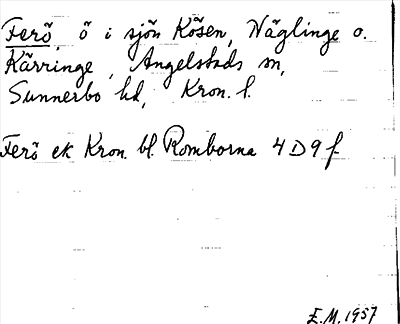 Ferö, ö i sjön Kösen, Näglinge o.
Kärringe, Angelstads sn,
Sunnerbo hd, Kron. l.
Ferö ek Kron. bl. Romborna 4 D 9 f
E.M. 1957